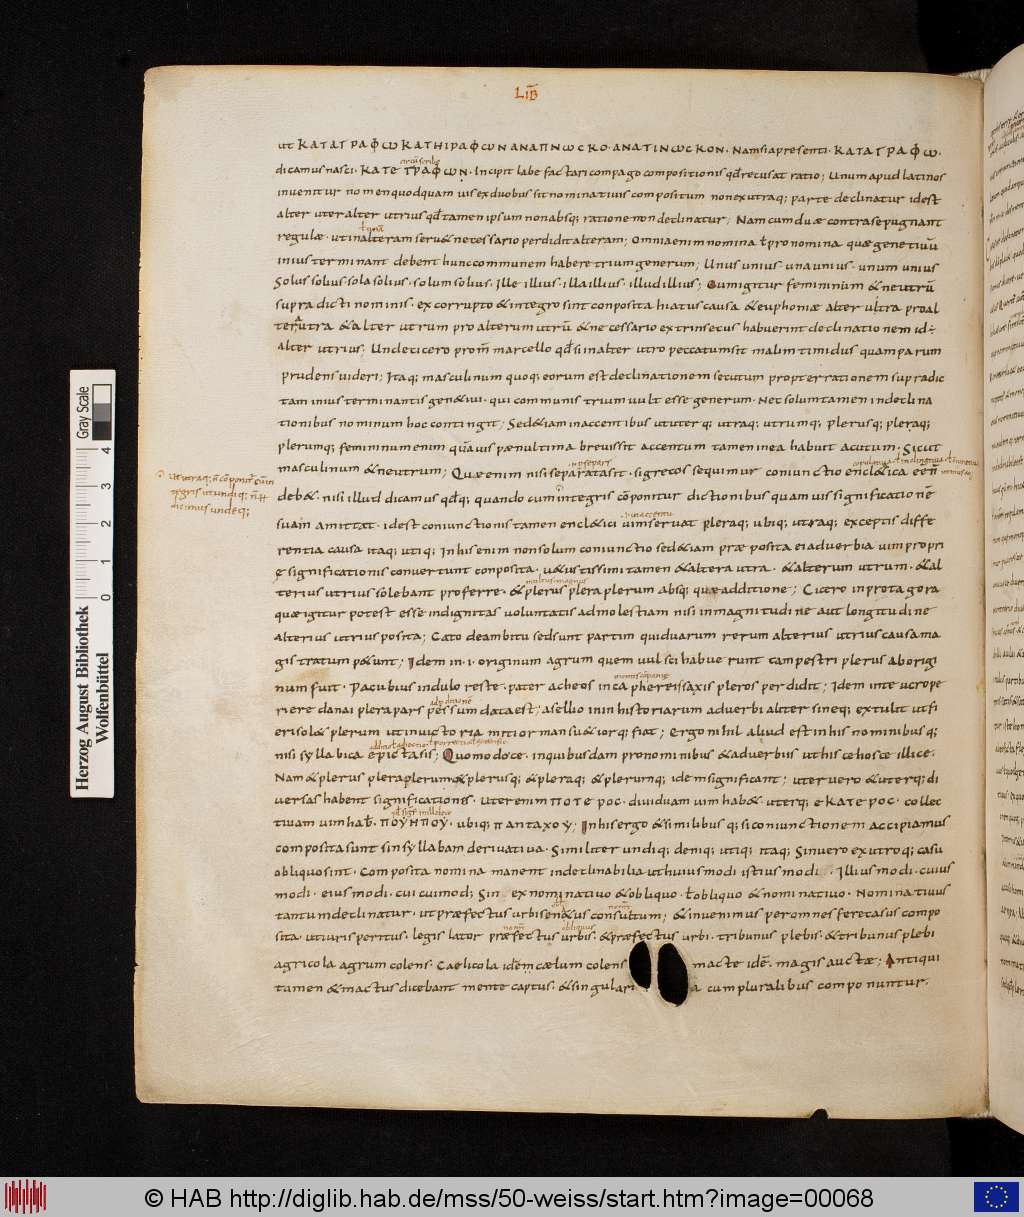 LIB
ut ΚΑΤΑΓΡΑΦω ΚΑΤΗΓΡΑΦωΝ ΑΝΑΠΝωCΚΟ · ΑΝΑΓΙΝωCΚΟΝ · Nam si a presenti · ΚΑΤΑΓΡΑΦω ·
dicamus nasci · ΚΑΤΕΓΡΑΦωΝ · Incipit labefactari compago compositionis qđ recusat ratio; Unum apud latinos
invenitur nomen quod quamvis ex duobus sit nominativis compositum non ex utraq; parte declinatur id est
alter uter alter utrius qđ tamen ipsum non absq; ratione non declinatur; Nam cum duæ contra se pugnant
regulæ · ut in alteram serv& necessario perdidit alteram; Omnia enim nomina ł pronomina quæ genetivū
in ius terminant debent hunc communem habere trium generum; Unus unius · una unius · unum unius
Solus solius · sola solius · solum solius · ille illius · illa illius · illud illius; Cum igitur femininum & neutrū
supra dicti nominis · ex corrupto & integro sint conposita hiatus causa & euphoniæ alter ultra pro al
tera utra & alter utrum pro alterum utrū & necessario extrinsecus habuerint declinationem id ÷
alter utrius; Unde cicero prom̄ marcello qđ si in alter utro peccatum sit malim timidus quam parum
prudens videri; Itaq; masculinum quoq; eorum est declinationem secutum propter rationem supra dic
tam in ius terminantis gen&ivi · qui communis trium vult esse generum · Nec solum tamen in declina
tionibus nominum hoc contingit; Sed &iam in accentibus ut uterq; utraq; utrumq; plerusq; pleraq;
plerumq; femininum enim quāvis pænultima brevis sit accentum tamen in ea habuit acutum; Sicut
masculinum & neutrum; Quæ enim nisi separata sit · si grecos sequimur coniunctio encl&ica een̄
deb& · nisi illud dicamus qđ q; quando cum integris cōponitur dictionibus quamvis significationē
suam amittat · id est coniunctionis tamen encl&ici vim servat pleraq; ubiq; utraq; exceptis diffe
rentia causa itaq; utiq; In his enim non solum coniunctio sed &iam præposita ei adverbia vim propri
ę significationis convertunt conposita · v&ustissimi tamen & altera utra · & alterum utrum · & al
terius utrius solebant proferre · & plerus plera plerum absq; quæ additione; Cicero in protagora
quæ igitur potest esse indignitas voluntatis ad molestiam nisi in magnitudine aut longitudine
alterius utrius posita; Cato de ambitu sed sunt partim qui duarum rerum alterius utrius causa ma
gistratum p&unt; Idem in · i · originum agrum quem vulsci habuerunt campestri plerus aborigi
num fuit · Pacubius in dulo reste · pater acheos in capherei saxis pleros perdidit; Idem in teucro pe
riere danai plera pars pessum data est; asellio in in historiarum adverbi alter sineq; extulit utfi
eri sol& plerum ut in victoria mitior mansu&iorq; fiat; Ergo nihil aliud est in his nominibus q;
nisi syllabica epictasis; Quomodo ce · in quibusdam pronominibus & adverbiis ut hisce hosce illice ·
Nam & plerus plera plerum & plerusq; & pleraq; & plerumq; idem significant; uter vero & uterq; di
versas habent significationes · uter enim ΠΟΤΕΡΟC · dividuam vim hab& · uterq; ΕΚΑΤΕΡΟC · collec
tivam vim hab̄ · ΠΟΥΗΠΟΥ · ubiq; ΠΑΝΤΑΧΟΥ; In his ergo & similibus q; si coniunctionem accipiamus
composita sunt sin syllabam derivativa · Similiter undiq; deniq; utiq; itaq; Sin vero ex utroq; casu
obliquo sint · Composita nomina manent indeclinabilia ut huiusmodi istiusmodi · Illiusmodi · cuius
modi · eiusmodi · cuicuimodi; Sin ex nominativo & obliquo · ł obliquo & nominativo · Nominativus
tantum declinatur · ut præfectus urbi senatus consultum; & invenimus per omnes fere casus compo
sita · ut iuris peritus · legis lator præfectus urbis · & præfectus urbi · tribunus plebis · & tribunus plebi
agricola agrum colens · Caelicola idem cælum colens macte idē · magis auctæ; Antiqui
tamen & mactus dicebant mente captus · & singulari a cum pluralibus componuntur ·
Herzog August Bibliothek
Wolfenbüttel
Gray Scale
0 1 2 3 4
© HAB http://diglib.hab.de/mss/50-weiss/start.htm?image=00068